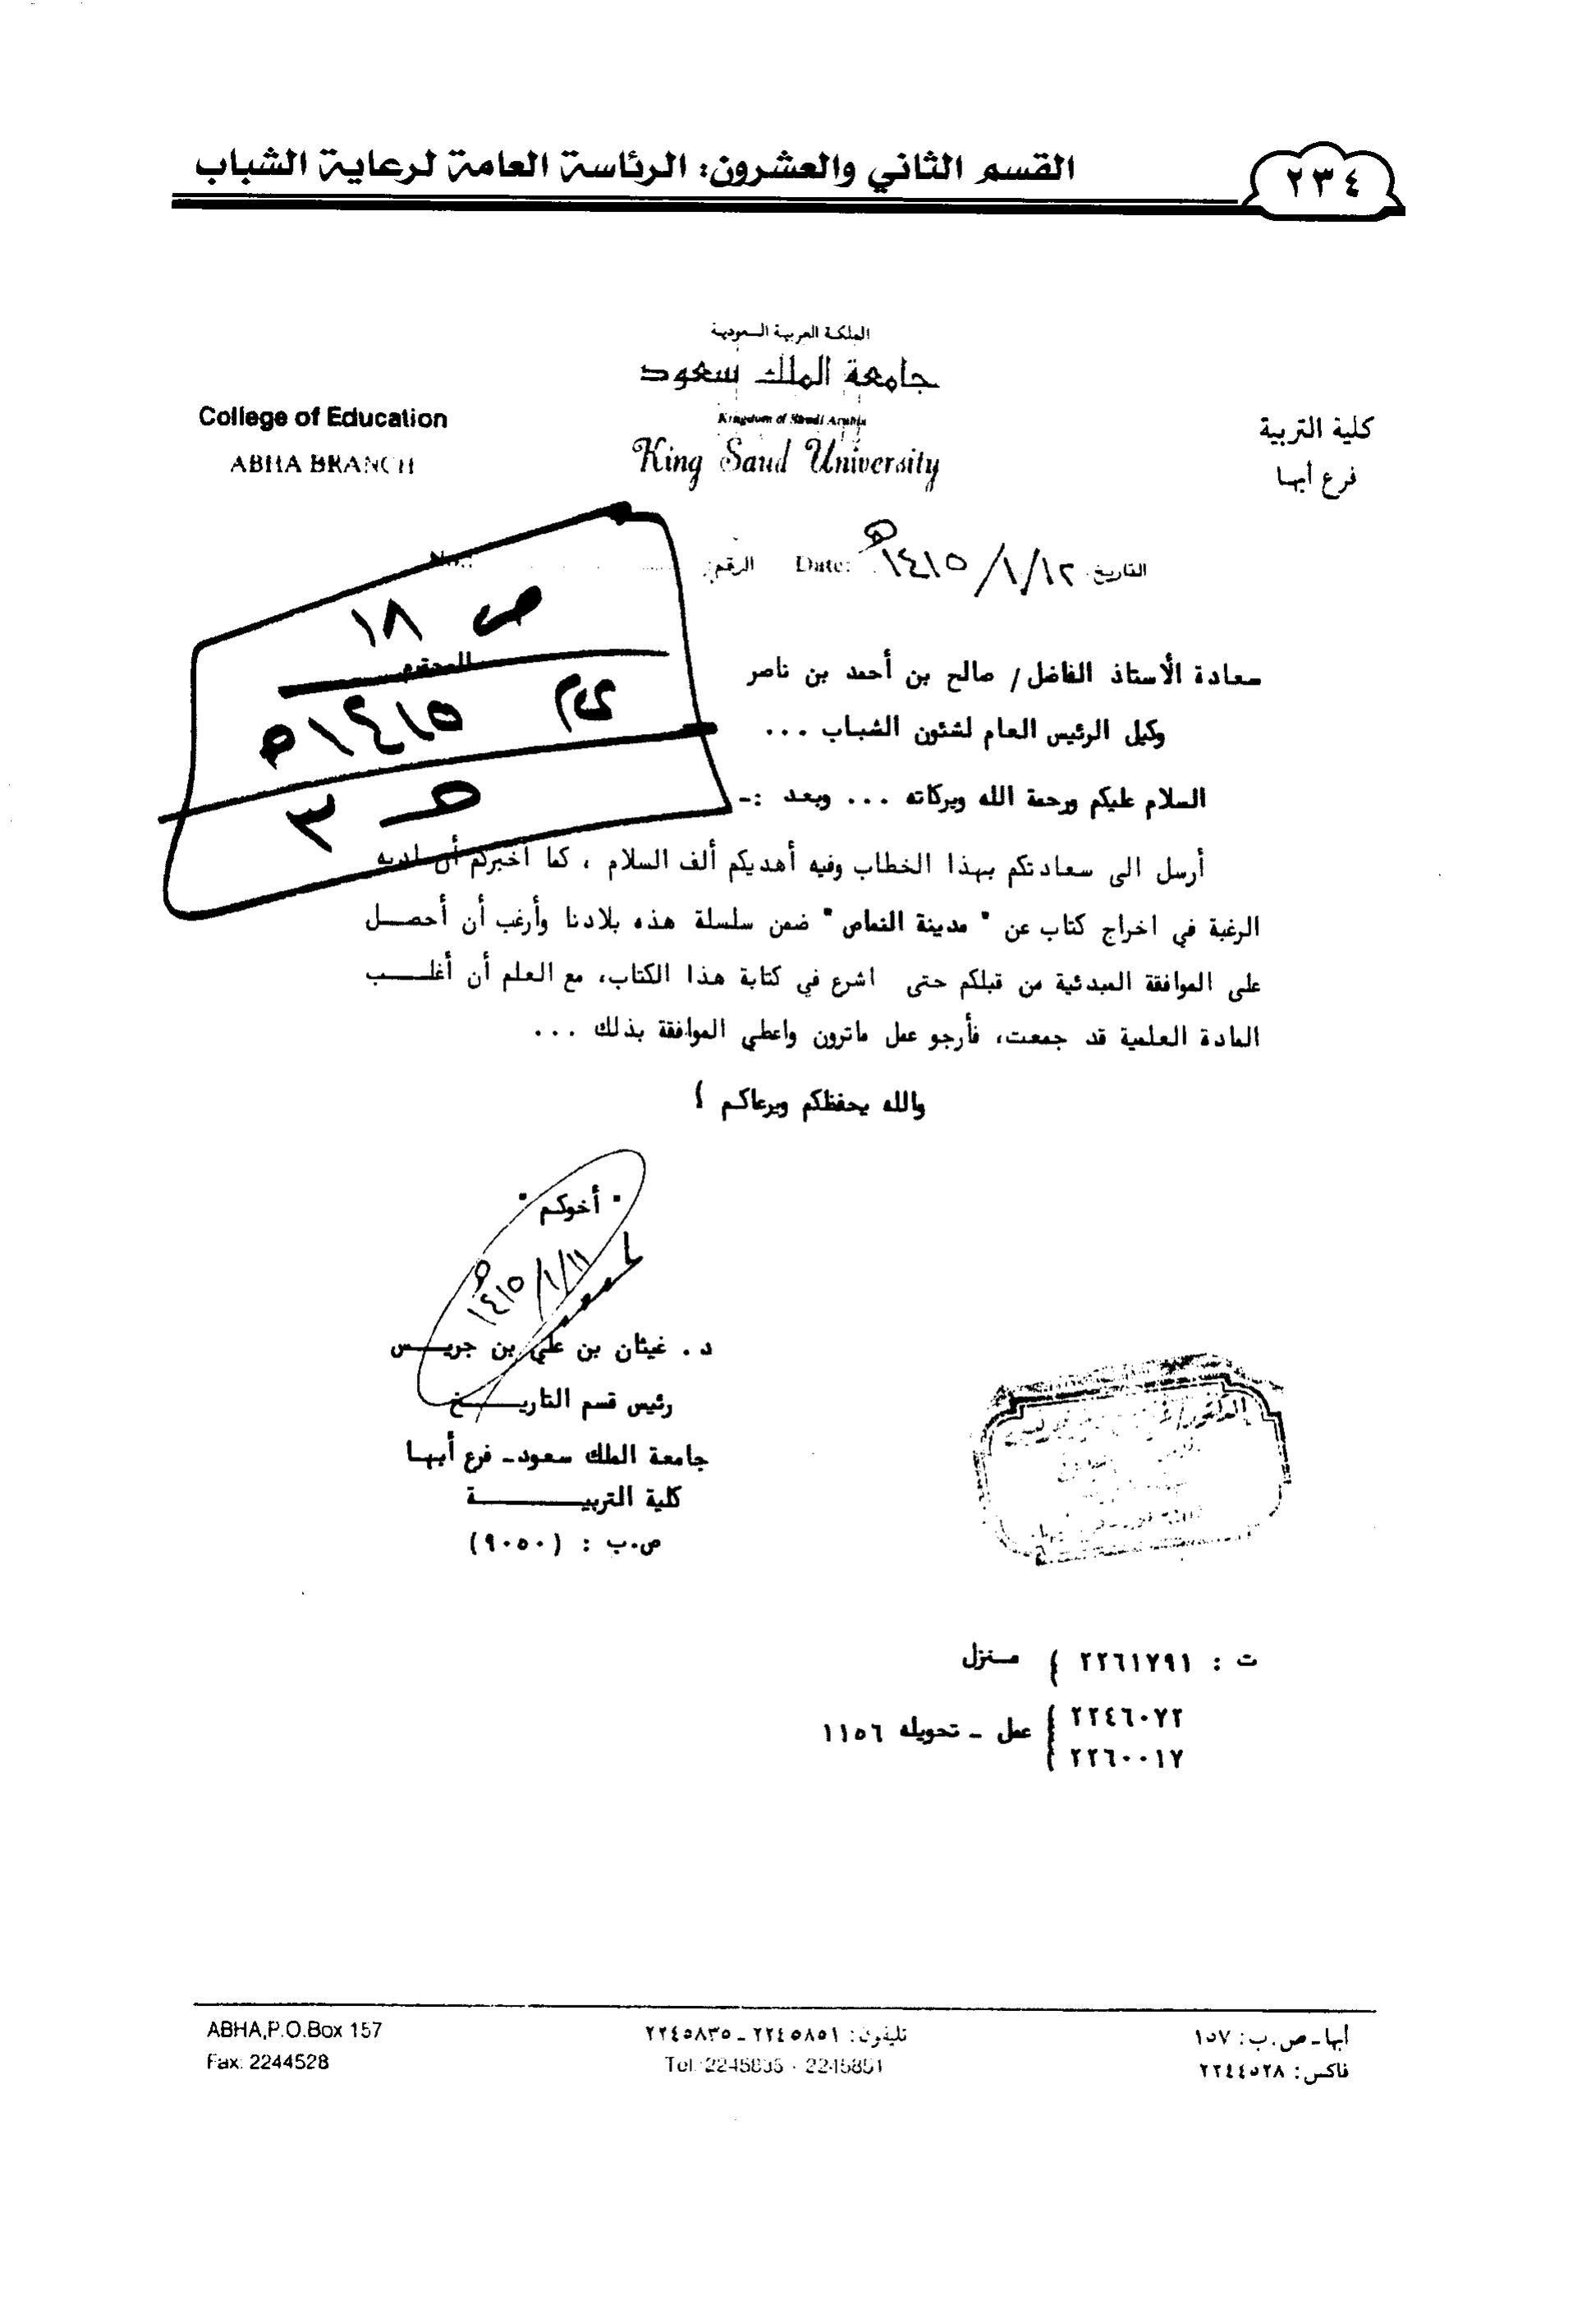 ٢٣٤
القسم الثاني والعشرون: الرئاسة العامة لرعاية الشباب
المملكة العربية السعودية
جامعة الملك سعود
Kingdom of Saudi Arabia
King Saud University
College of Education
ABHA BRANCH
كلية التربية
فرع أبها
التاريخ: ١٤١٥/١/١٢ هـ Date: الرقم: No.:
ص ١٨
١٤١٥هـ
٣
سعادة الأستاذ الفاضل/ صالح بن أحمد بن ناصر المحترم
وكيل الرئيس العام لشئون الشباب ...
السلام عليكم ورحمة الله وبركاته ... وبعد :-
أرسل الى سعادتكم بهذا الخطاب وفيه أهديكم ألف السلام ، كما أخبركم أن لديه
الرغبة في اخراج كتاب عن " مدينة النماص " ضمن سلسلة هذه بلادنا وأرغب أن أحصل
على الموافقة المبدئية من قبلكم حتى اشرع في كتابة هذا الكتاب، مع العلم أن أغلب
المادة العلمية قد جمعت، فأرجو عمل ماترون واعطي الموافقة بذلك ...
والله يحفظكم ويرعاكم ؛
" أخوكم "
١٤١٥/١/١١هـ
د . غيثان بن علي بن جريس
رئيس قسم التاريخ
جامعة الملك سعود - فرع أبها
كلية التربية
ص.ب : (٩٠٥٠)
ت : ٢٢٦١٧٩١ ) منزل
٢٢٤٦٠٧٢
٢٢٦٠٠١٧
عمل - تحويله ١١٥٦
أبها - ص.ب: ١٥٧
فاكس: ٢٢٤٤٥٢٨
تليفون: ٢٢٤٥٨٥١ - ٢٢٤٥٨٣٥
Tel: 2245835 - 2245851
ABHA,P.O.Box 157
Fax: 2244528